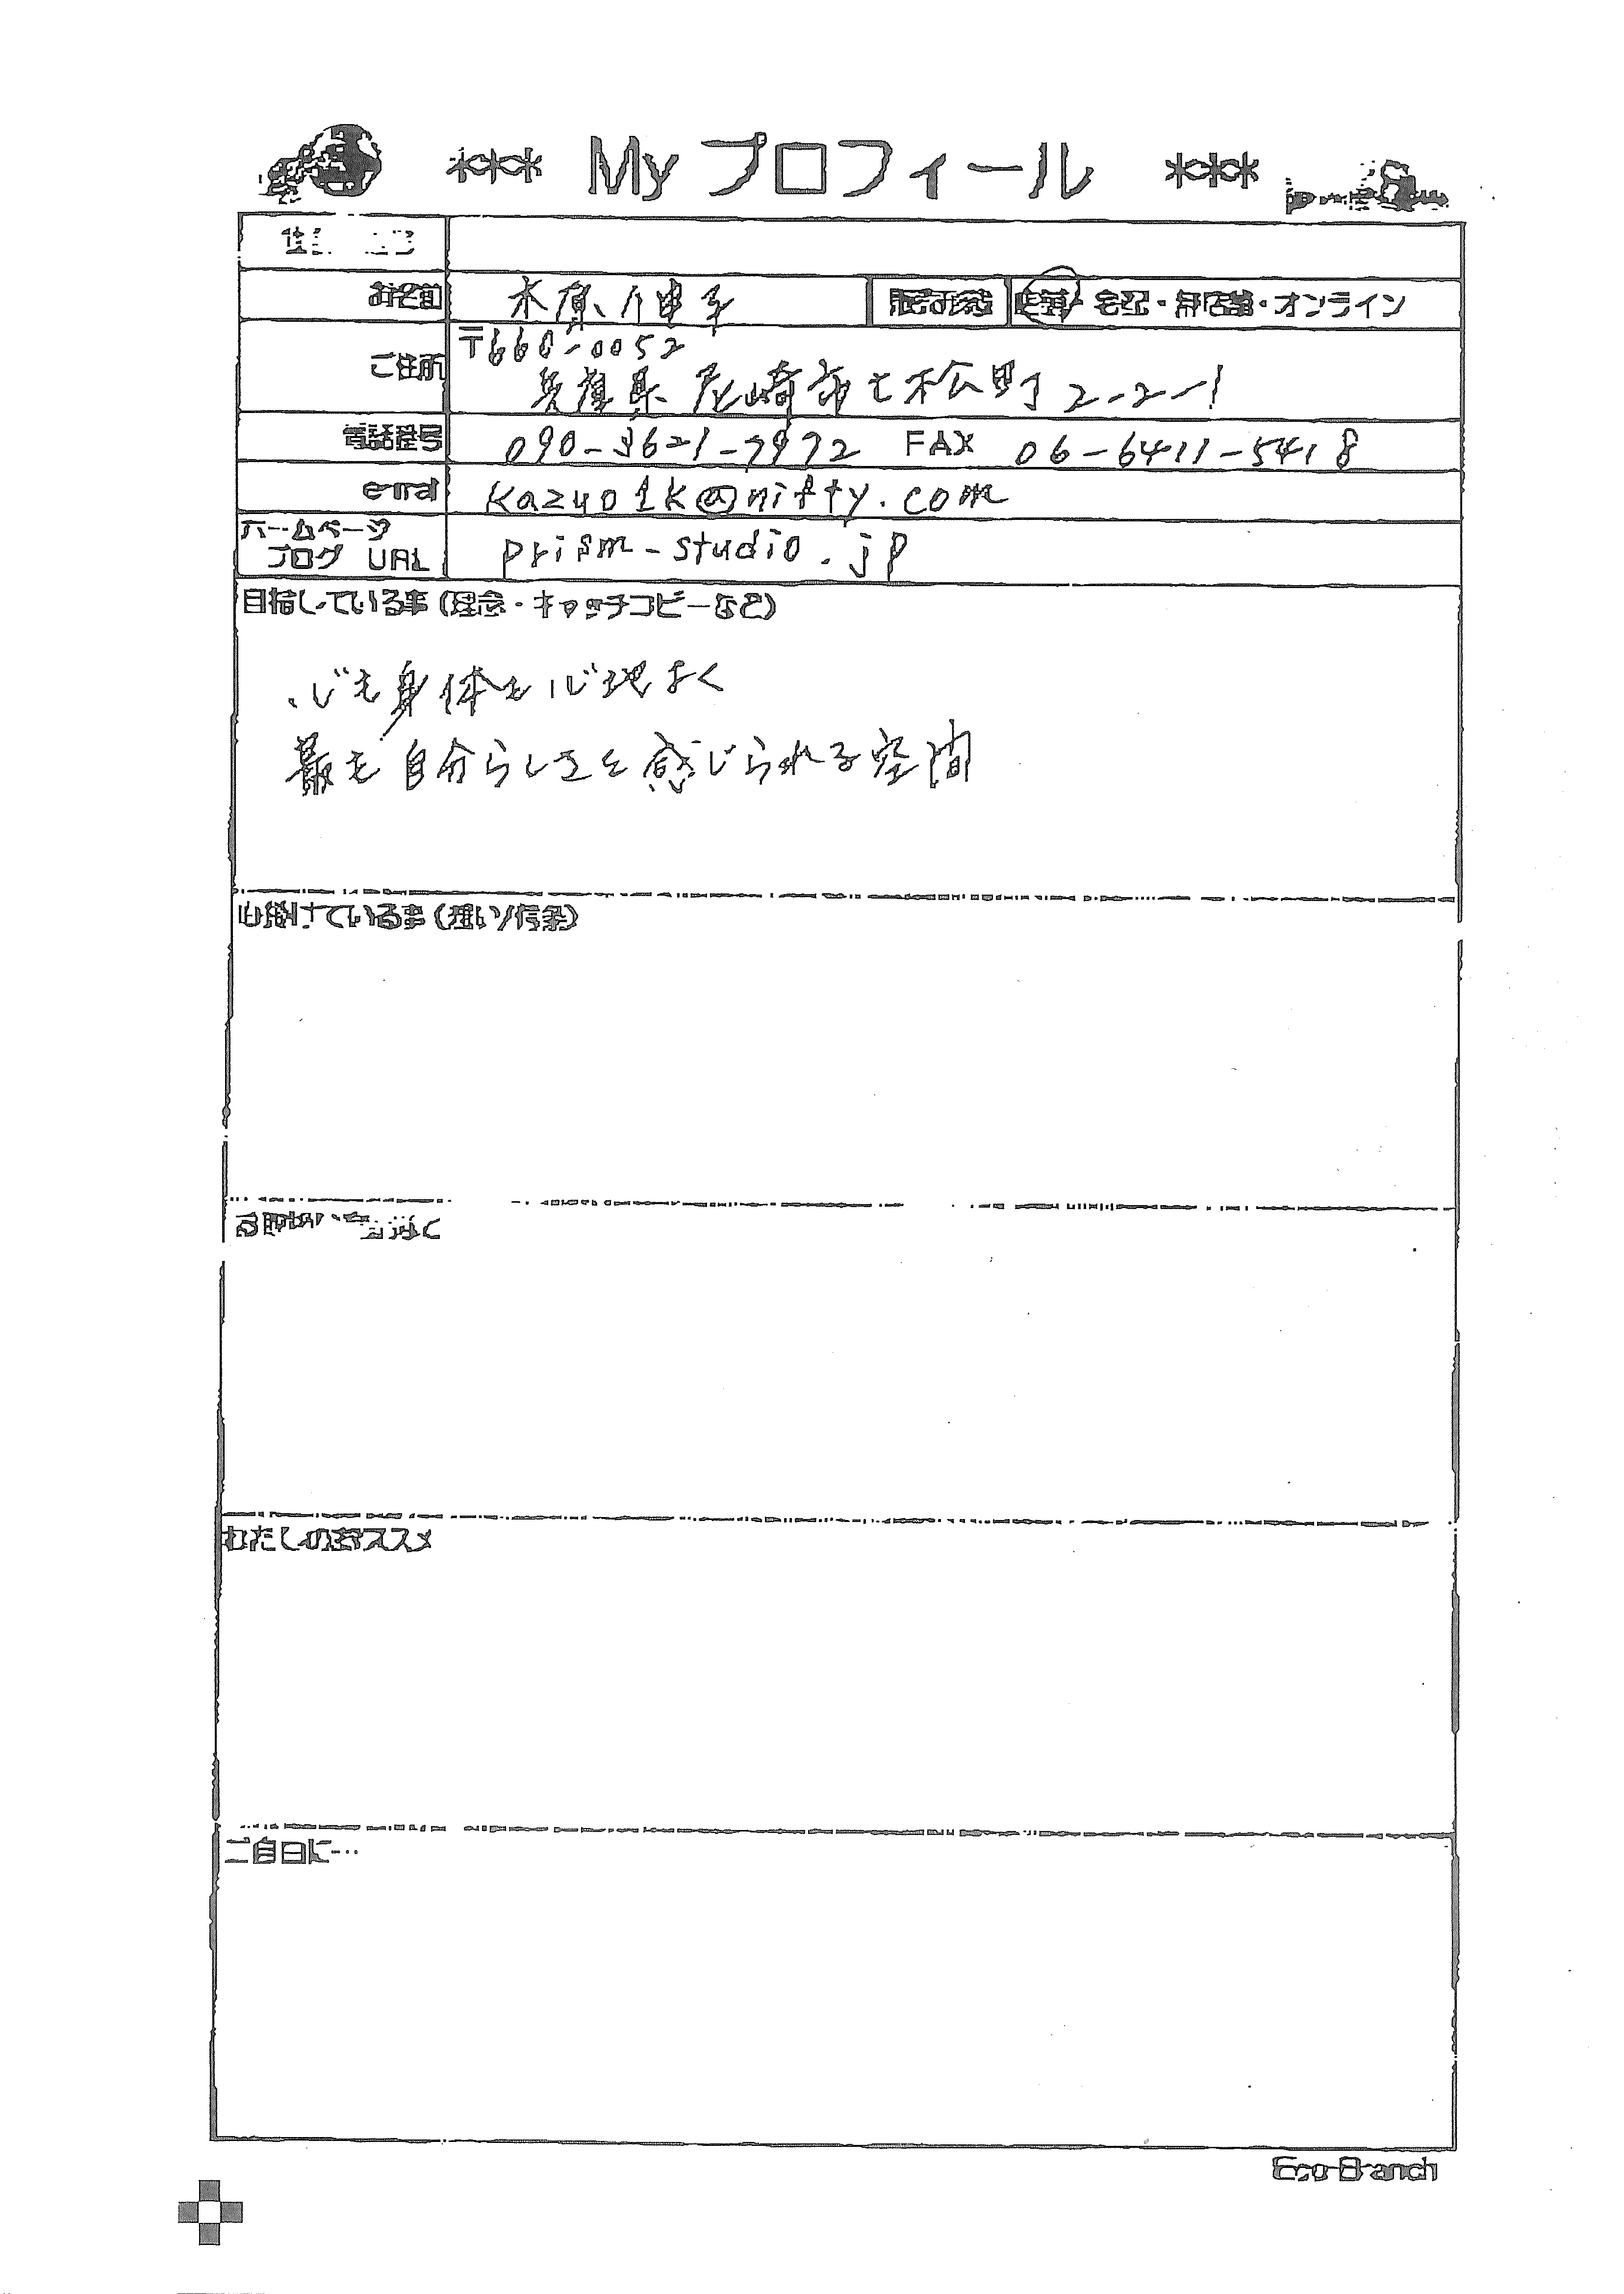 *** My プロフィール ***
お名前 木原 伸子 販売形態 店舗・宅配・無店舗・オンライン
ご住所 〒660-0052
兵庫県尼崎市七松町2-2-1
電話番号 090-3621-7972 FAX 06-6411-5418
e-mail kazu01k@nifty.com
ホームページ prism-studio.jp
ブログ URL
目指している事(理念・キャッチコピーなど)
心も身体も心地よく
最も自分らしさを感じられる空間
心掛けている事(想い/信条)
わたしのおススメ
ご自由に…
Eco-Branch